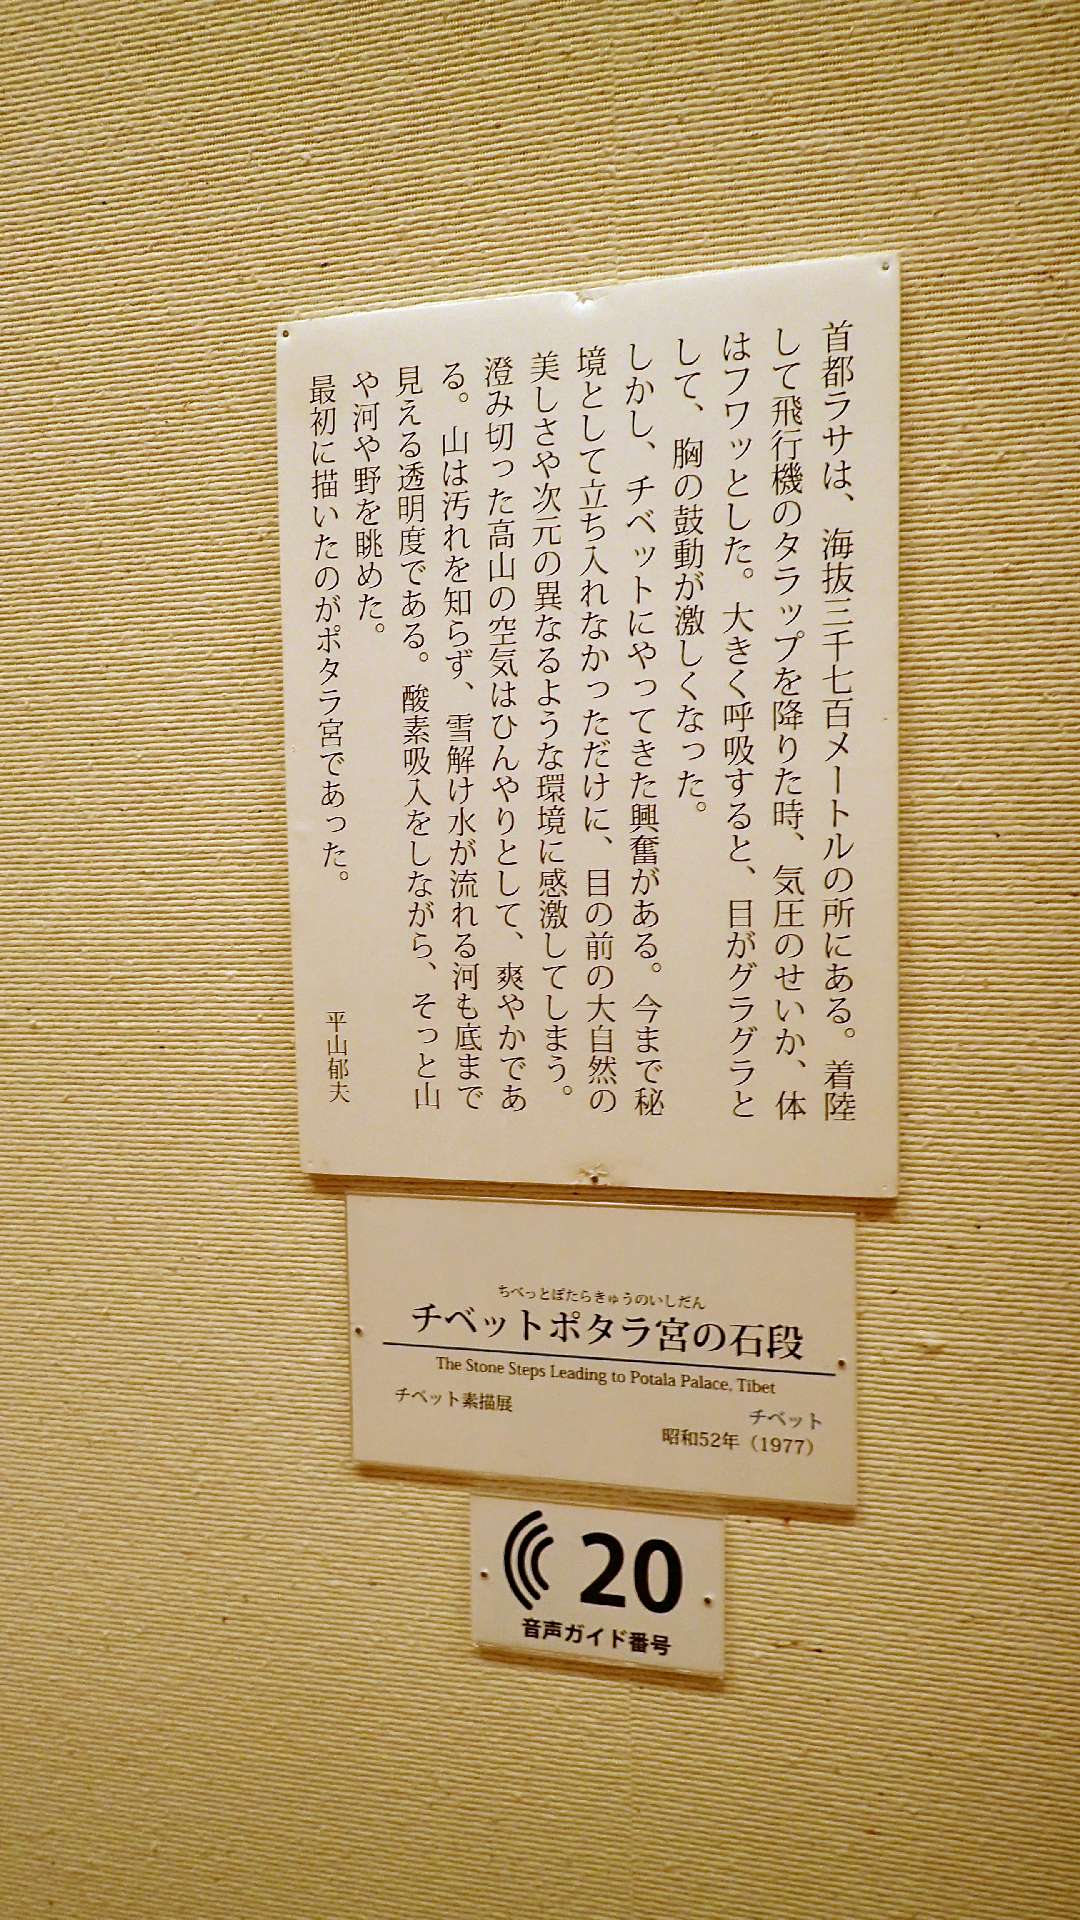 首都ラサは、海抜三千七百メートルの所にある。着陸
して飛行機のタラップを降りた時、気圧のせいか、体
はフワッとした。大きく呼吸すると、目がグラグラと
して、胸の鼓動が激しくなった。
しかし、チベットにやってきた興奮がある。今まで秘
境として立ち入れなかっただけに、目の前の大自然の
美しさや次元の異なるような環境に感激してしまう。
澄み切った高山の空気はひんやりとして、爽やかであ
る。山は汚れを知らず、雪解け水が流れる河も底まで
見える透明度である。酸素吸入をしながら、そっと山
や河や野を眺めた。
最初に描いたのがポタラ宮であった。
平山郁夫
ちべっとぽたらきゅうのいしだん
チベットポタラ宮の石段
The Stone Steps Leading to Potala Palace, Tibet
チベット素描展
チベット
昭和52年（1977）
20
音声ガイド番号